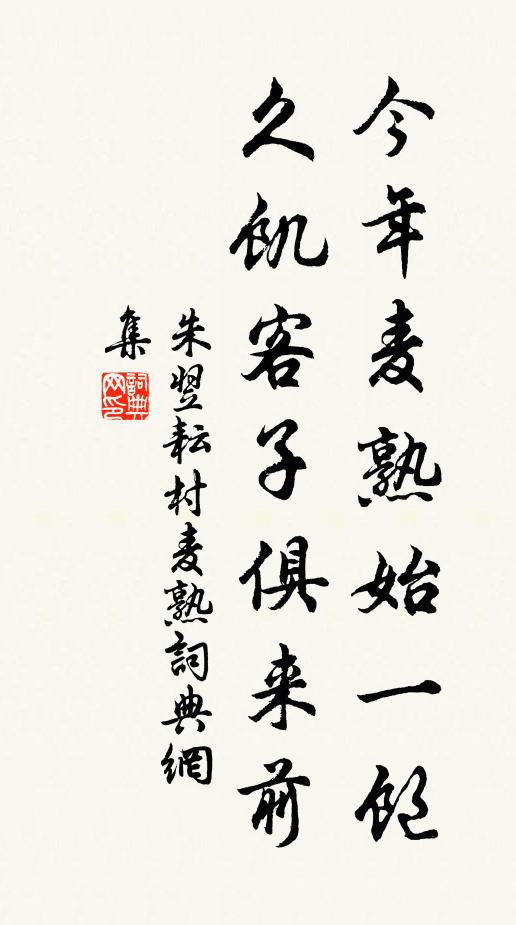 今年麦熟始一饱
久飢客子俱来前
朱翌耘村麦熟詞典網
集
詞典
网印